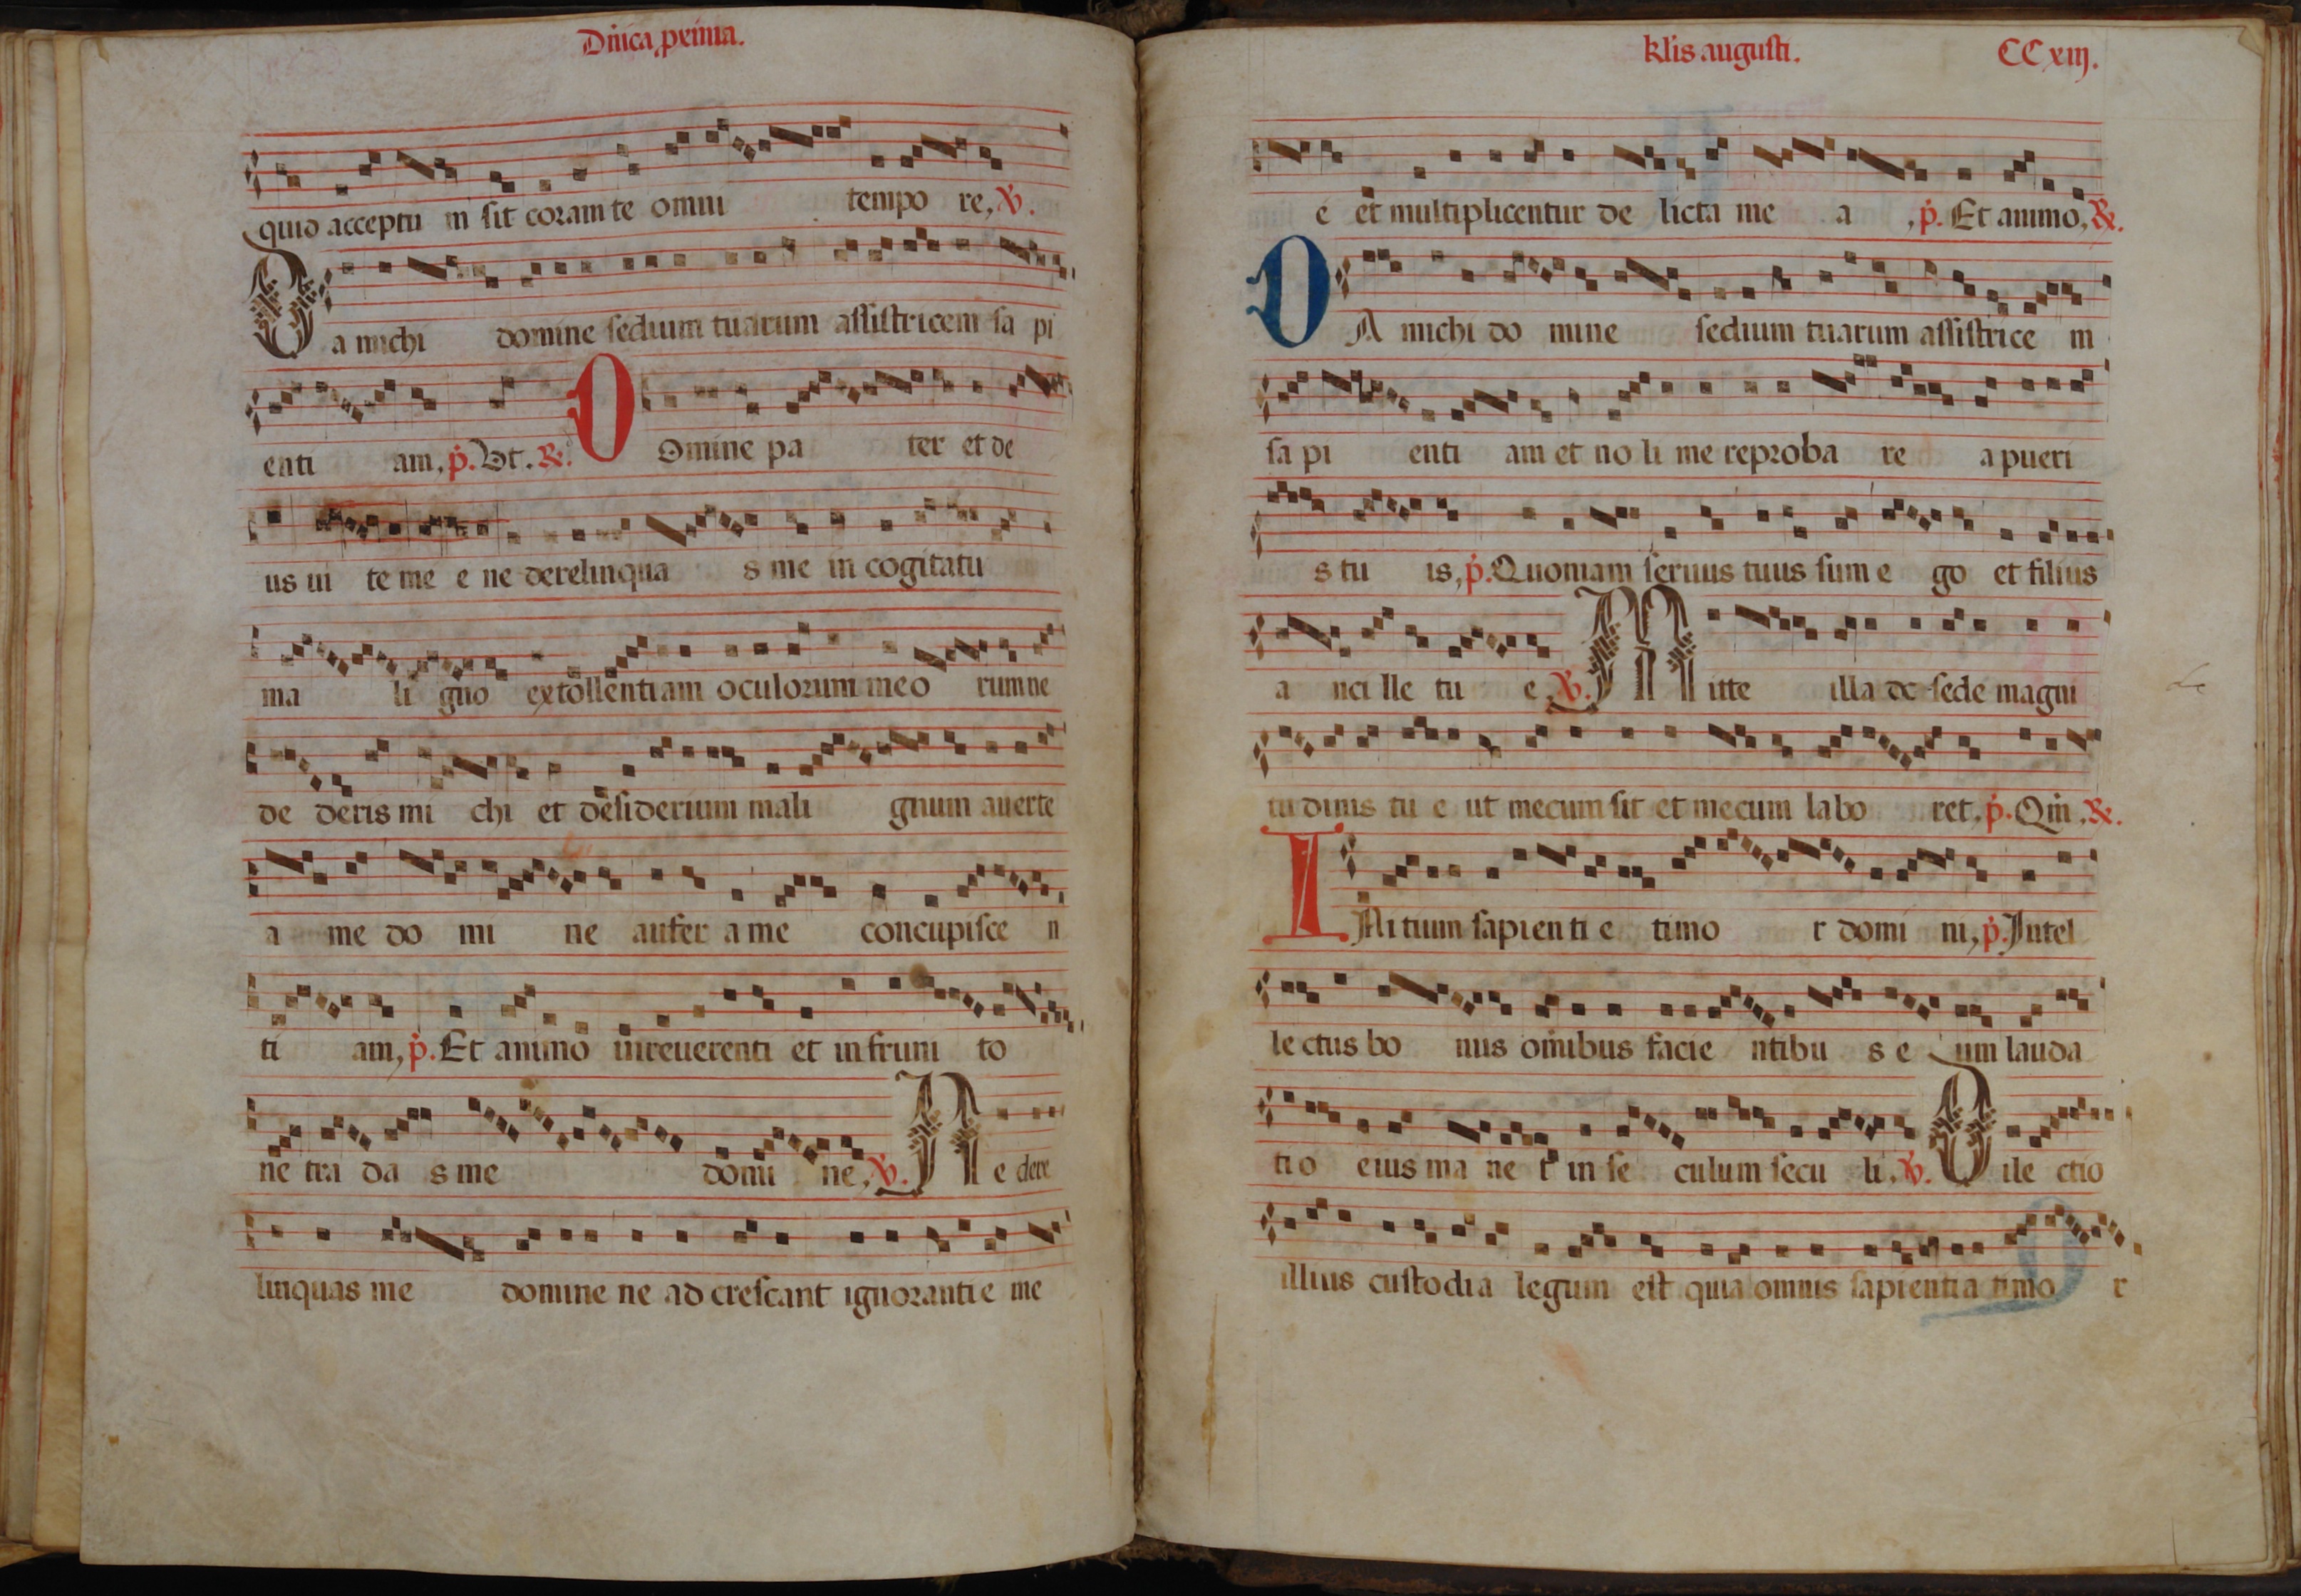 Dn̄ica prima.
quid acceptu m sit coram te omni tempo re, ℣.
Da michi domine sedium tuarum assistricem sa pi
enti am, p̄. Ut. ℟.
DOmine pa ter et de
us ui te me e ne derelinqua s me in cogitatu
ma li gno extollentiam oculorum meo rum ne
de deris mi chi et desiderium mali gnum auerte
a me do mi ne aufer a me concupisce n
ti am, p̄. Et animo inreuerenti et infruni to
ne tra da s me domi ne, ℣. Ne dere
linquas me domine ne ad crescant ignorantie me
klis augusti. CCxiij.
e et multiplicentur de licta me a , p̄. Et animo, ℟.
DA michi do mine sedium tuarum assistrice m
sa pi enti am et no li me reproba re a pueri
s tu is, p̄. Quoniam seruus tuus sum e go et filius
a nci lle tu e, ℣. Mitte illa de sede magni
tudinis tu e ut mecum sit et mecum labo ret, p̄. Qm̄, ℟.
INitium sapienti e timo r domi ni, p̄. Intel
lectus bo nus om̄ibus facie ntibu s e um lauda
ti o eius ma ne t in se culum secu li, ℣. Dile ctio
illius custodia legum est quia omnis sapientia timo r